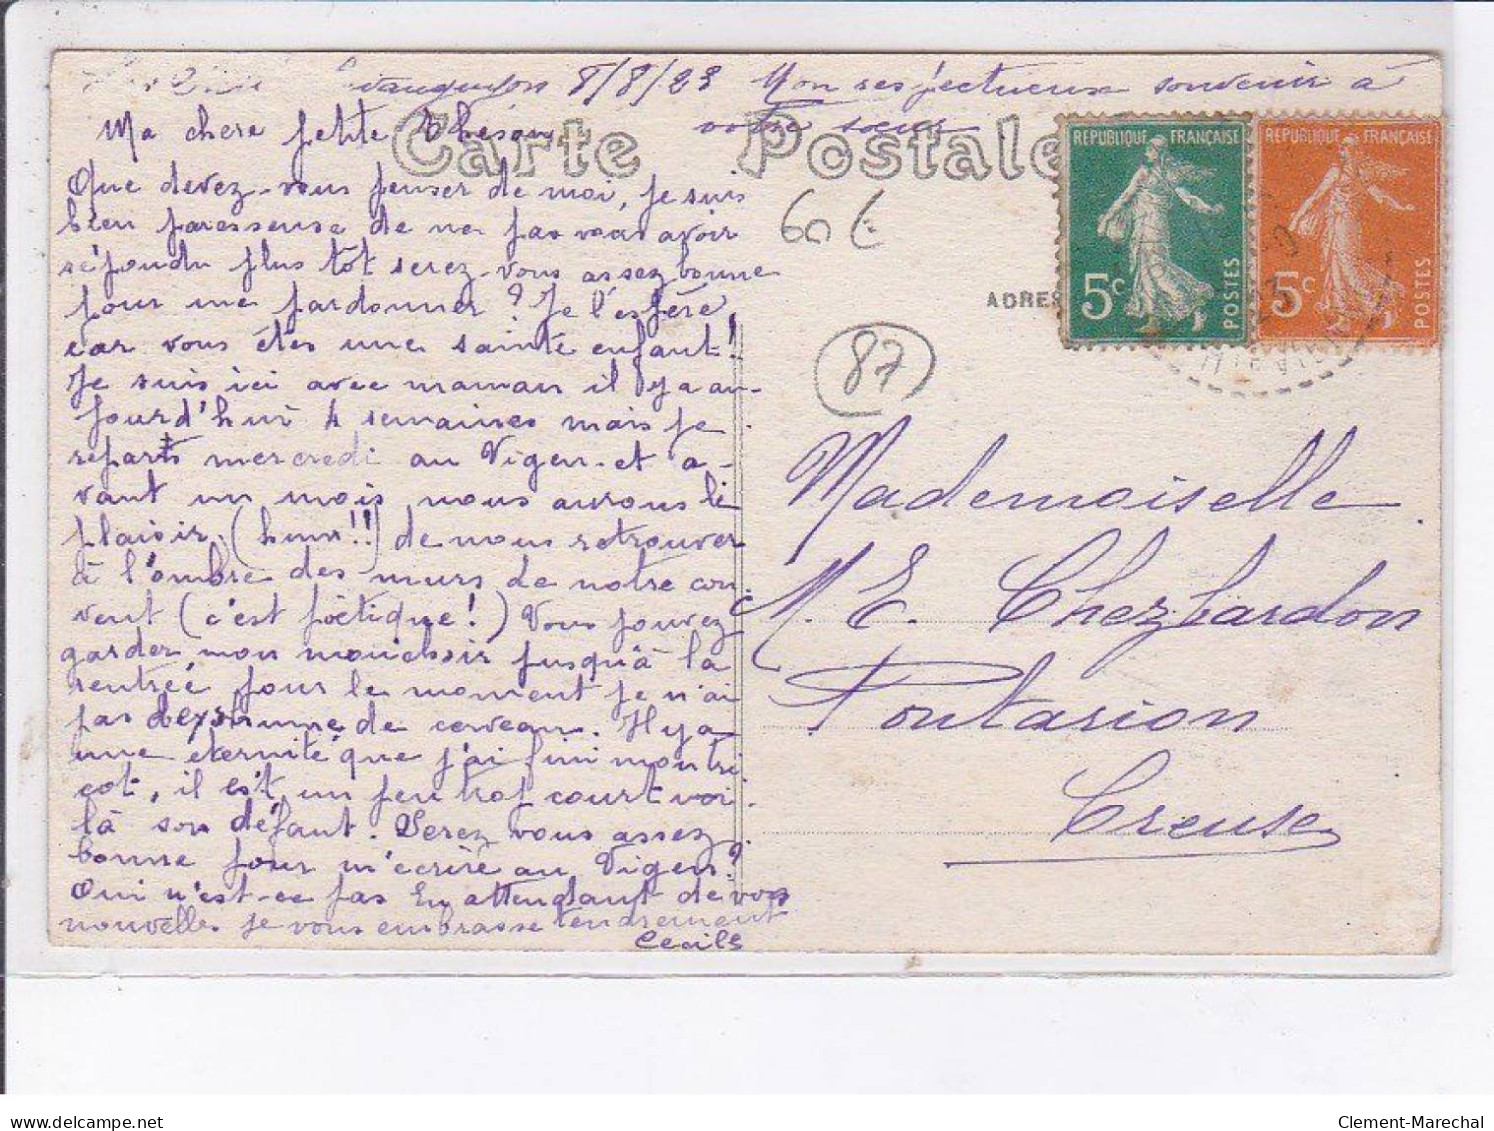 8/8/23 Mon respectueux souvenir à
votre soeur
Ma chère petite
Carte Postale
Que devez-vous penser de moi, je suis
bien paresseuse de ne pas vous avoir
répondu plus tôt serez-vous assez bonne
pour me pardonner ? Je l'espère
car vous êtes une sainte enfant !
Je suis ici avec maman il y a au-
jourd'hui 4 semaines mais je
reparts mercredi au Vigen et a-
vant un mois nous aurons le
plaisir (hum !!) de nous retrouver
à l'ombre des murs de notre con
vent (c'est poétique !) Vous pouvez
garder mon mouchoir jusqu'à la
rentrée pour le moment je n'ai
pas de rhume de cerveau. Il y a
une éternité que j'ai fini mon tri
cot, il est un peu trop court voi
là son défaut. Serez vous assez
bonne pour m'écrire au Vigen ?
Oui n'est-ce pas En attendant de vos
nouvelles je vous embrasse tendrement
Cecile
60 €
87
ADRES
REPUBLIQUE FRANÇAISE
5c
POSTES
REPUBLIQUE FRANÇAISE
5c
POSTES
Mademoiselle
M. E. Chezbardon
Pontarion
Creuse
www.delcampe.net
Clement-Marechal